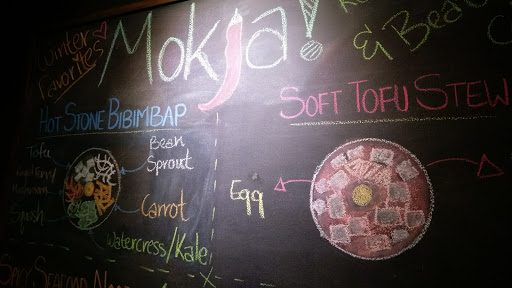 Winter
Favorites
Mokja!
& Bea
HOT STONE BIBIMBAP
SOFT TOFU STEW
Tofu
Bean
Sprout
Mushroom
Squash
Carrot
Watercress/Kale
Egg
Spicy Seafood Nood